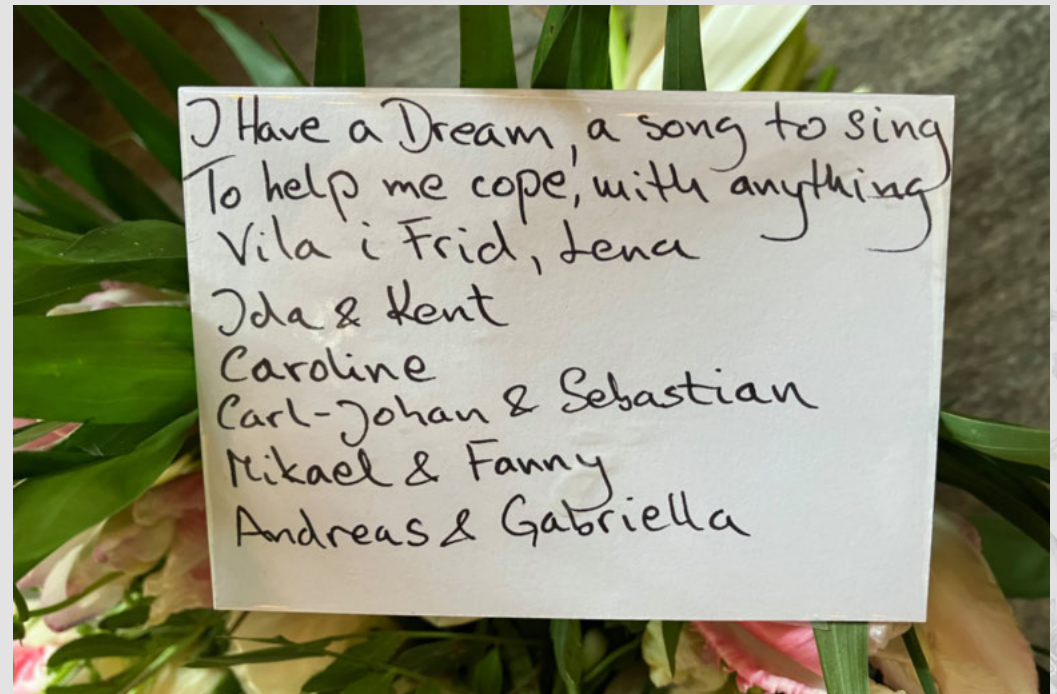 I Have a Dream, a song to sing
To help me cope, with anything
Vila i Frid, Lena
Ida & Kent
Caroline
Carl-Johan & Sebastian
Mikael & Fanny
Andreas & Gabriella